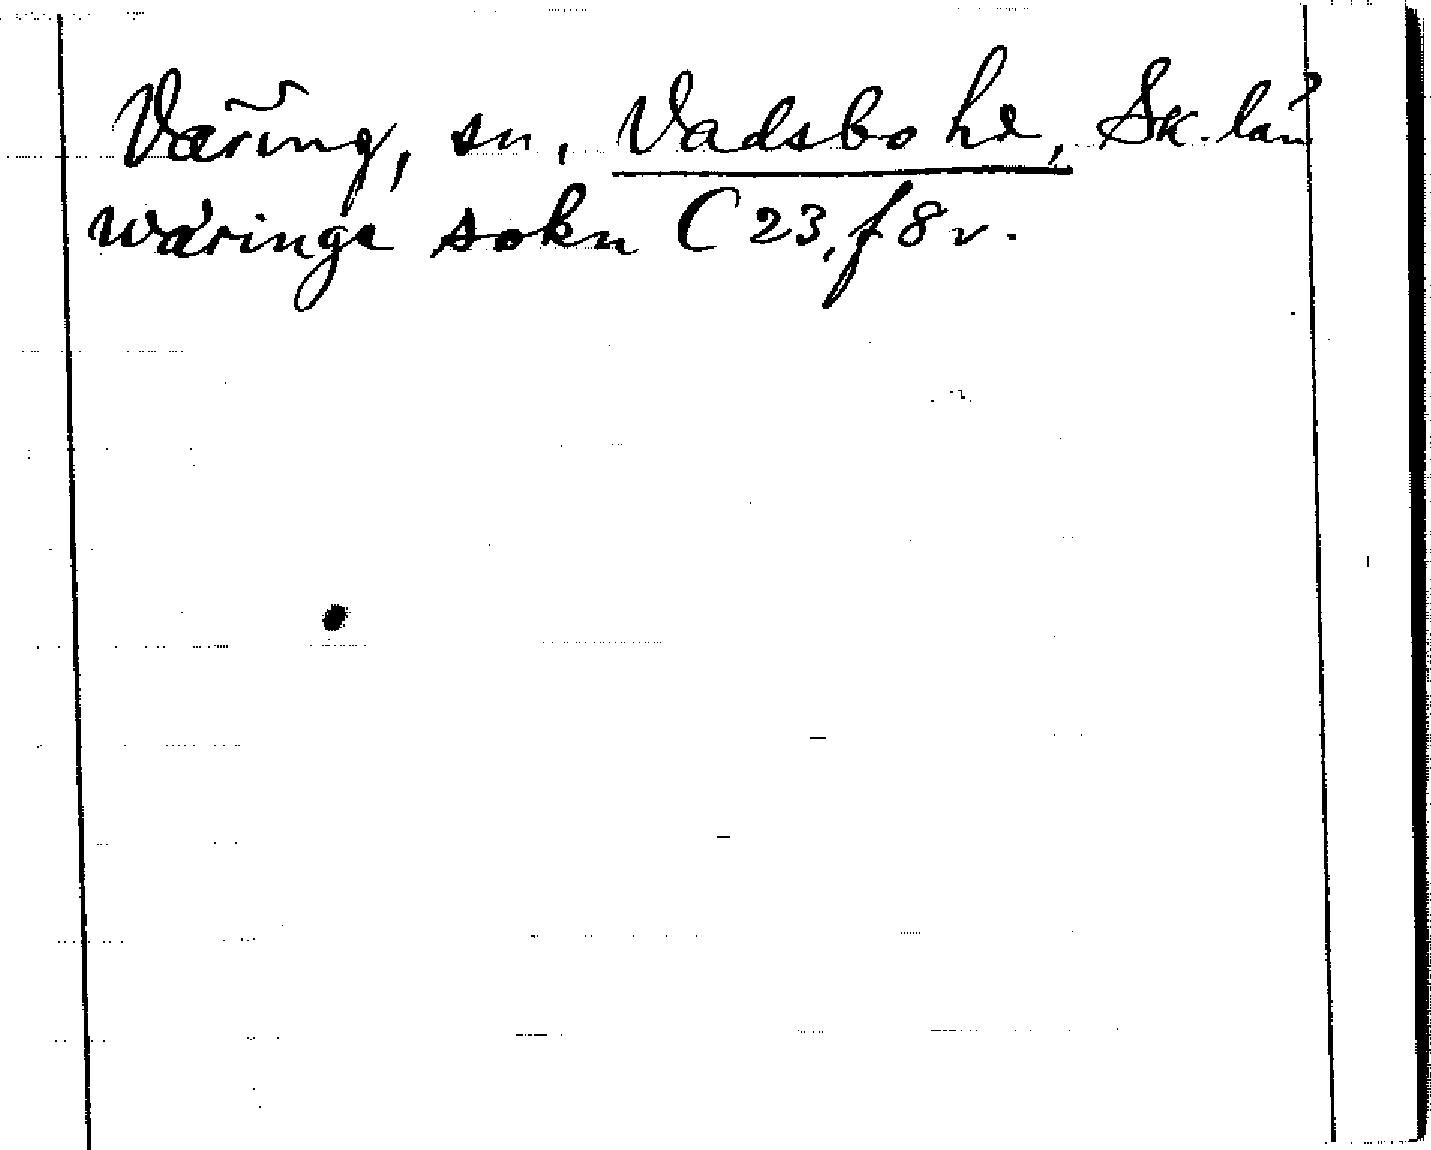 Väring, sn, Vadsbo hd, Sk. län
wäringe sokn C 23, f 8 v.